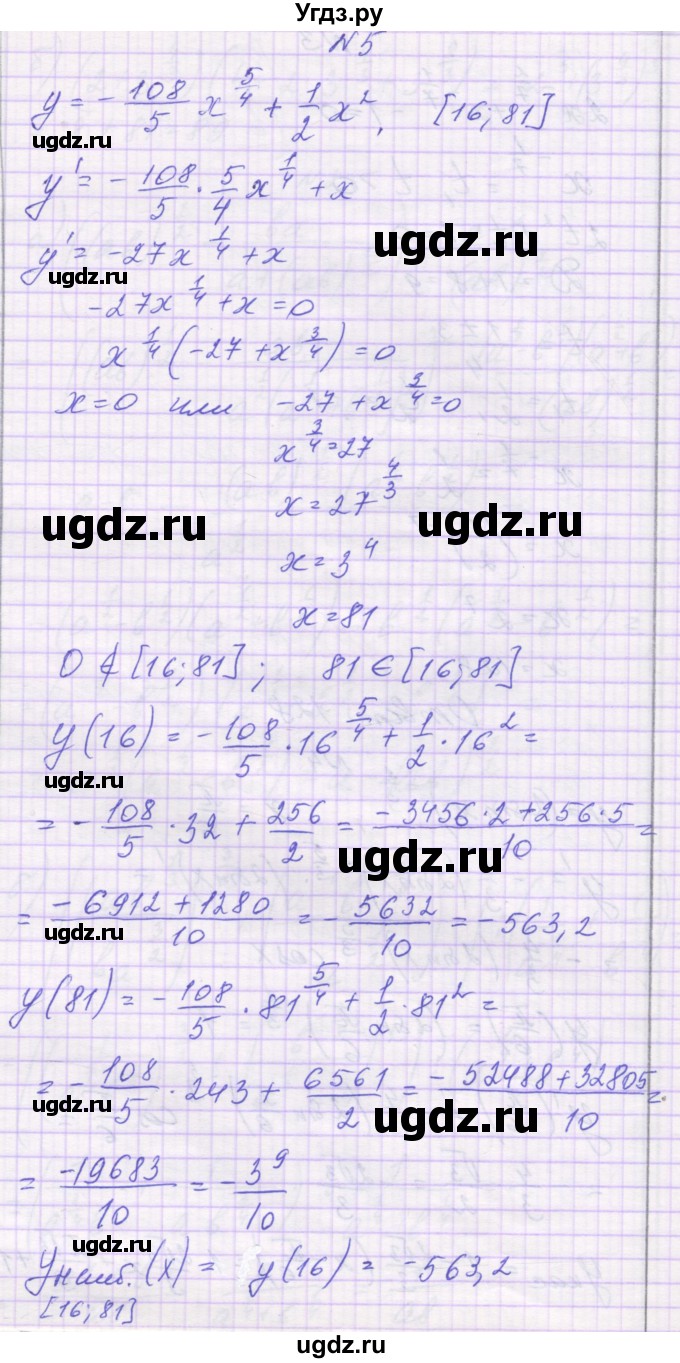 Угдз.ру
N5
y = -108/5 x^(5/4) + 1/2 x², [16; 81]
ugdz.ru
y' = -108/5 · 5/4 x^(1/4) + x
ugdz.ru
y' = -27x^(1/4) + x
ugdz.ru
-27x^(1/4) + x = 0
x^(1/4) (-27 + x^(3/4)) = 0
x = 0 или -27 + x^(3/4) = 0
x^(3/4) = 27
x = 27^(4/3)
ugdz.ru ugdz.ru
x = 3^4
x = 81
0 ∉ [16; 81]; 81 ∈ [16; 81]
y(16) = -108/5 · 16^(5/4) + 1/2 · 16² =
ugdz.ru
= -108/5 · 32 + 256/2 = (-3456·2 + 256·5)/10 =
ugdz.ru
= (-6912 + 1280)/10 = -5632/10 = -563,2
ugdz.ru
y(81) = -108/5 · 81^(5/4) + 1/2 · 81² =
= -108/5 · 243 + 6561/2 = (-52488 + 32805)/10 =
ugdz.ru ugdz.ru
= -19683/10 = -3^9/10
yнаиб.(x) = y(16) = -563,2
ugdz.ru
[16; 81]
ugdz.ru